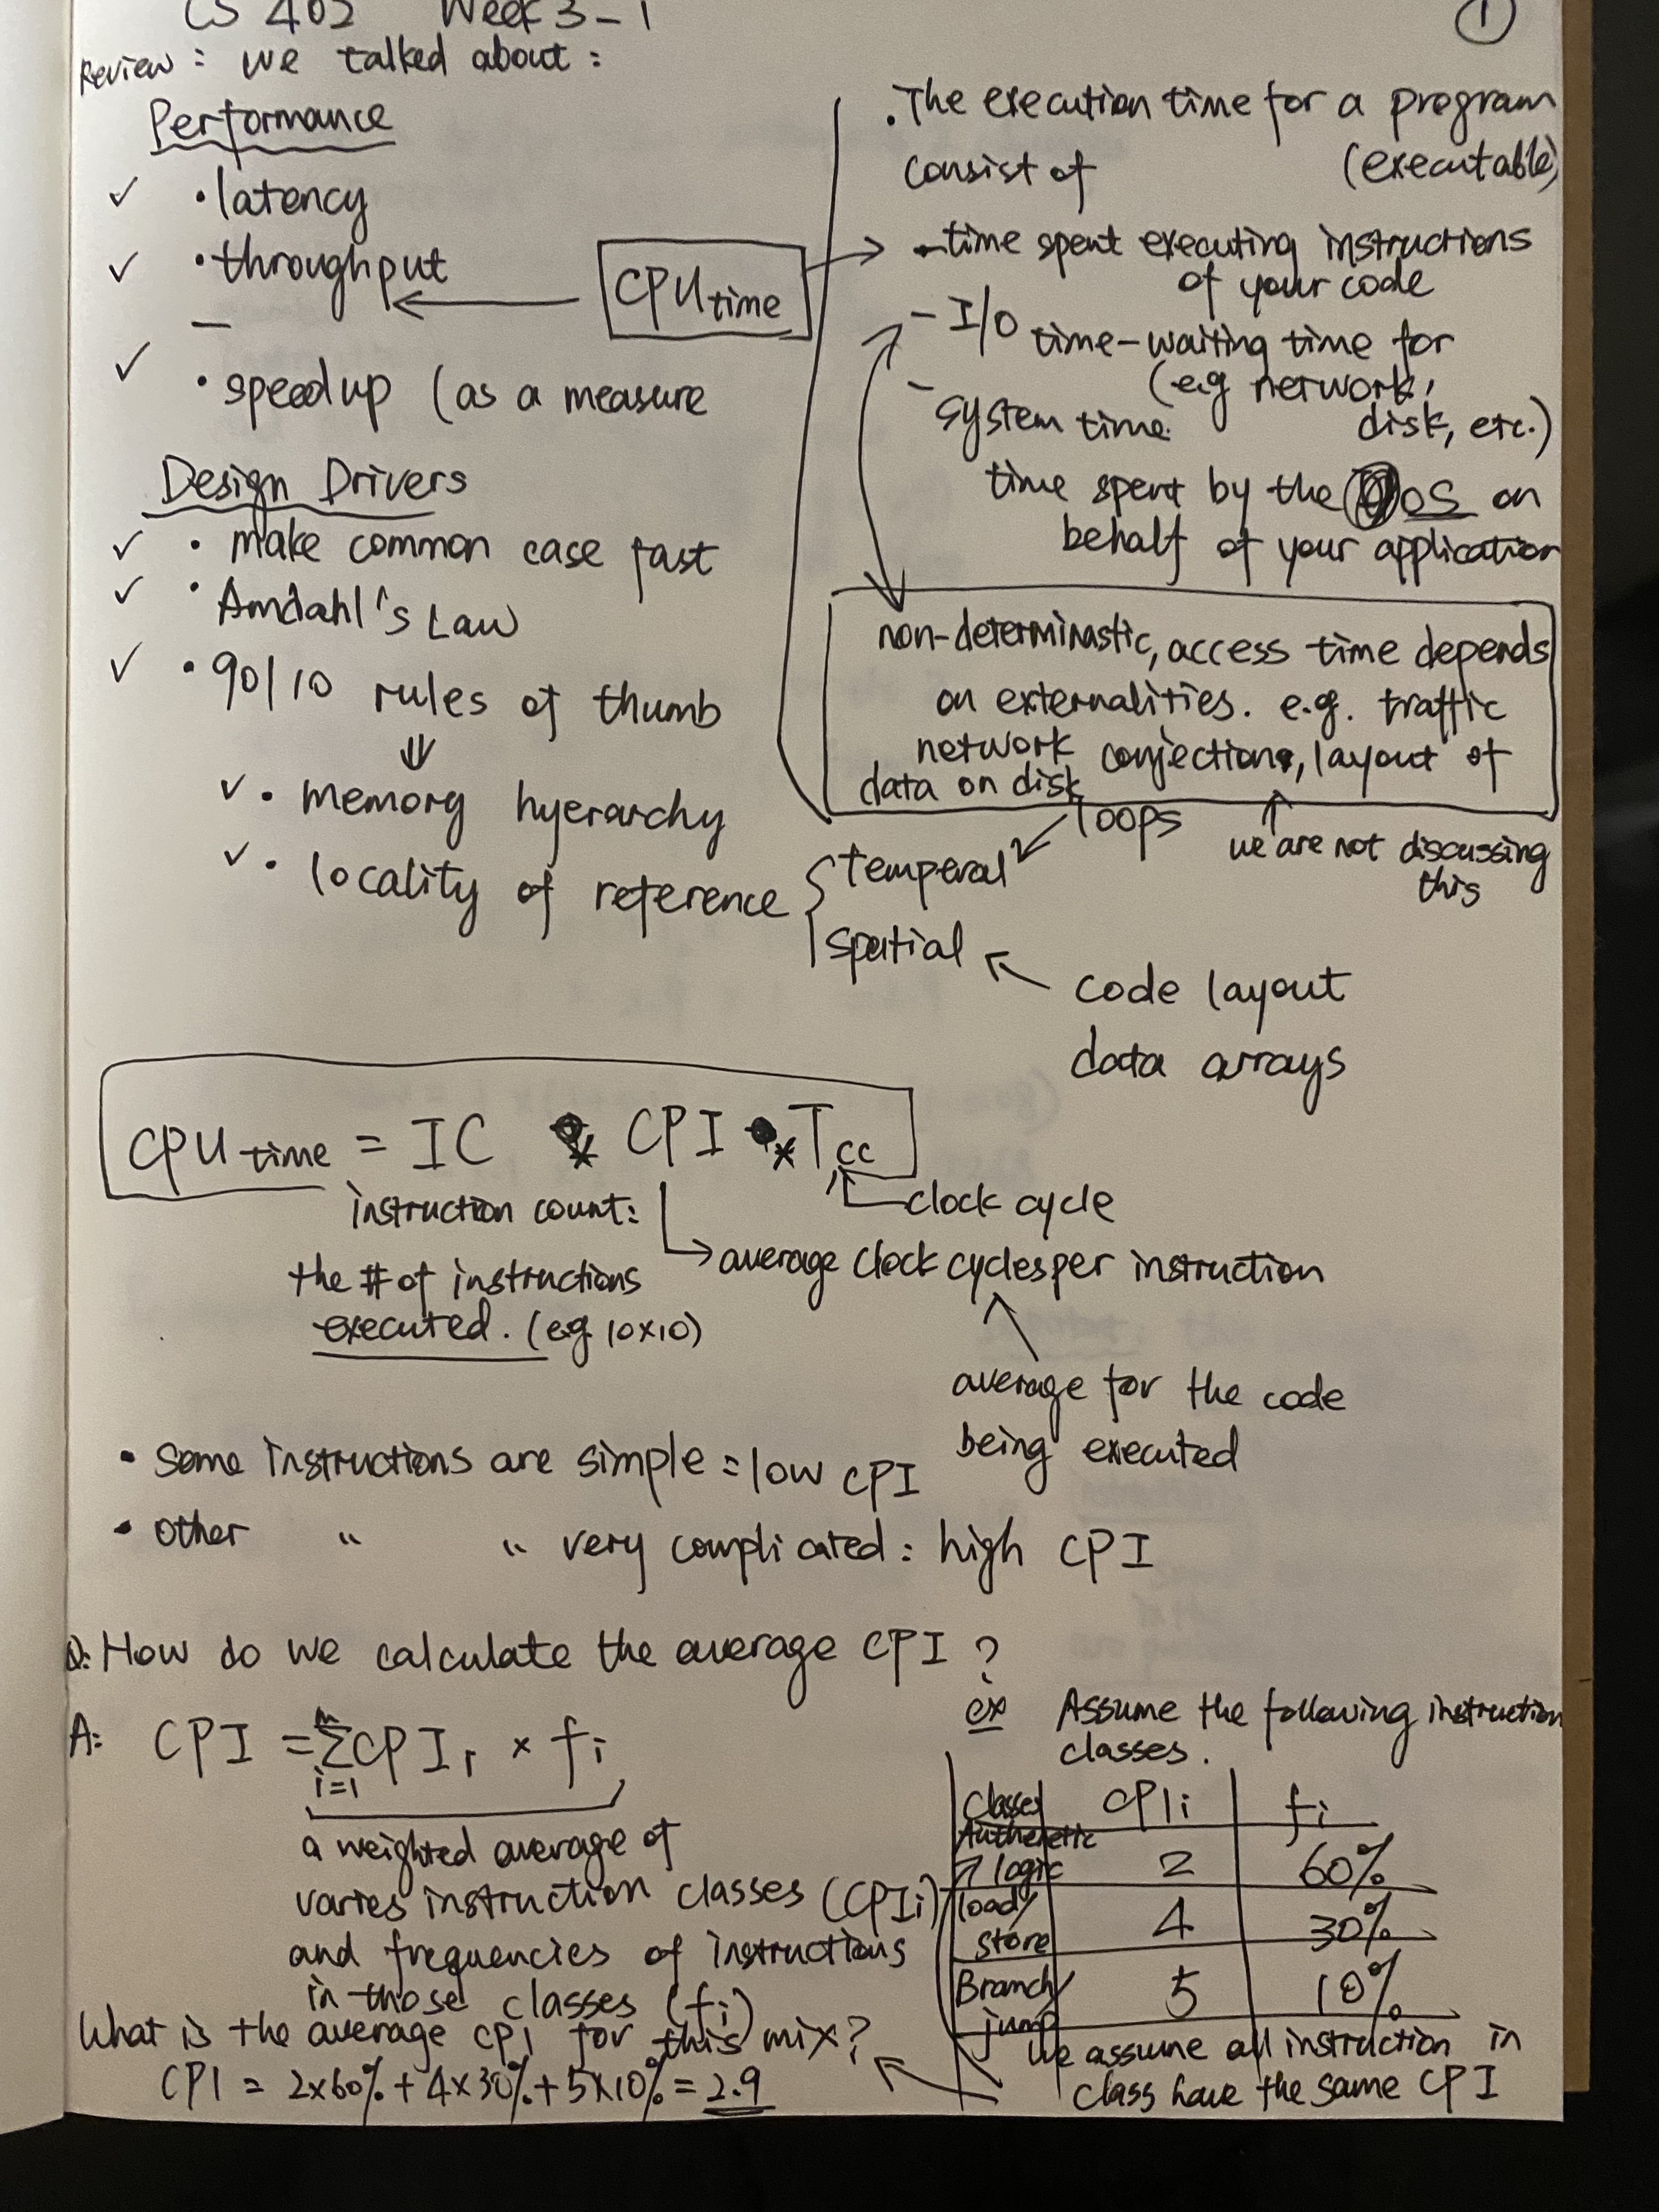 CS 402 Week 3-1
①
Review: we talked about:
Performance
✓ • latency
✓ • throughput
CPU time
✓ • speed up (as a measure
Design Drivers
✓ • make common case fast
✓ • Amdahl's Law
✓ • 90/10 rules of thumb
⇓
✓ • memory hyerarchy
✓ • locality of reference
temperal
loops
spatial
code layout
data arrays
• The execution time for a program
consist of (executable)
- time spent executing instructions
of your code
- I/O time-waiting time for
(e.g network,
disk, etc.)
- system time
time spent by the OS on
behalf of your application
non-deterministic, access time depends
on externalities. e.g. traffic
network conjections, layout of
data on disk
we are not discussing
this
CPU time = IC * CPI * Tcc
instruction count:
the # of instructions
executed. (eg 10x10)
clock cycle
average clock cycles per instruction
average for the code
being executed
• Some instructions are simple = low CPI
• Other " " very complicated: high CPI
Q: How do we calculate the average CPI ?
A: CPI = n∑i=1 CPIi × fi
a weighted average of
varies instruction classes (CPIi)
and frequencies of instructions
in those classes (fi)
ex Assume the following instruction
classes.
Classes CPIi fi
logic 2 60%
load/
store 4 30%
Branch/
jump 5 10%
We assume all instruction in
class have the same CPI
What is the average CPI for this mix?
CPI = 2x60% + 4x30% + 5x10% = 2.9